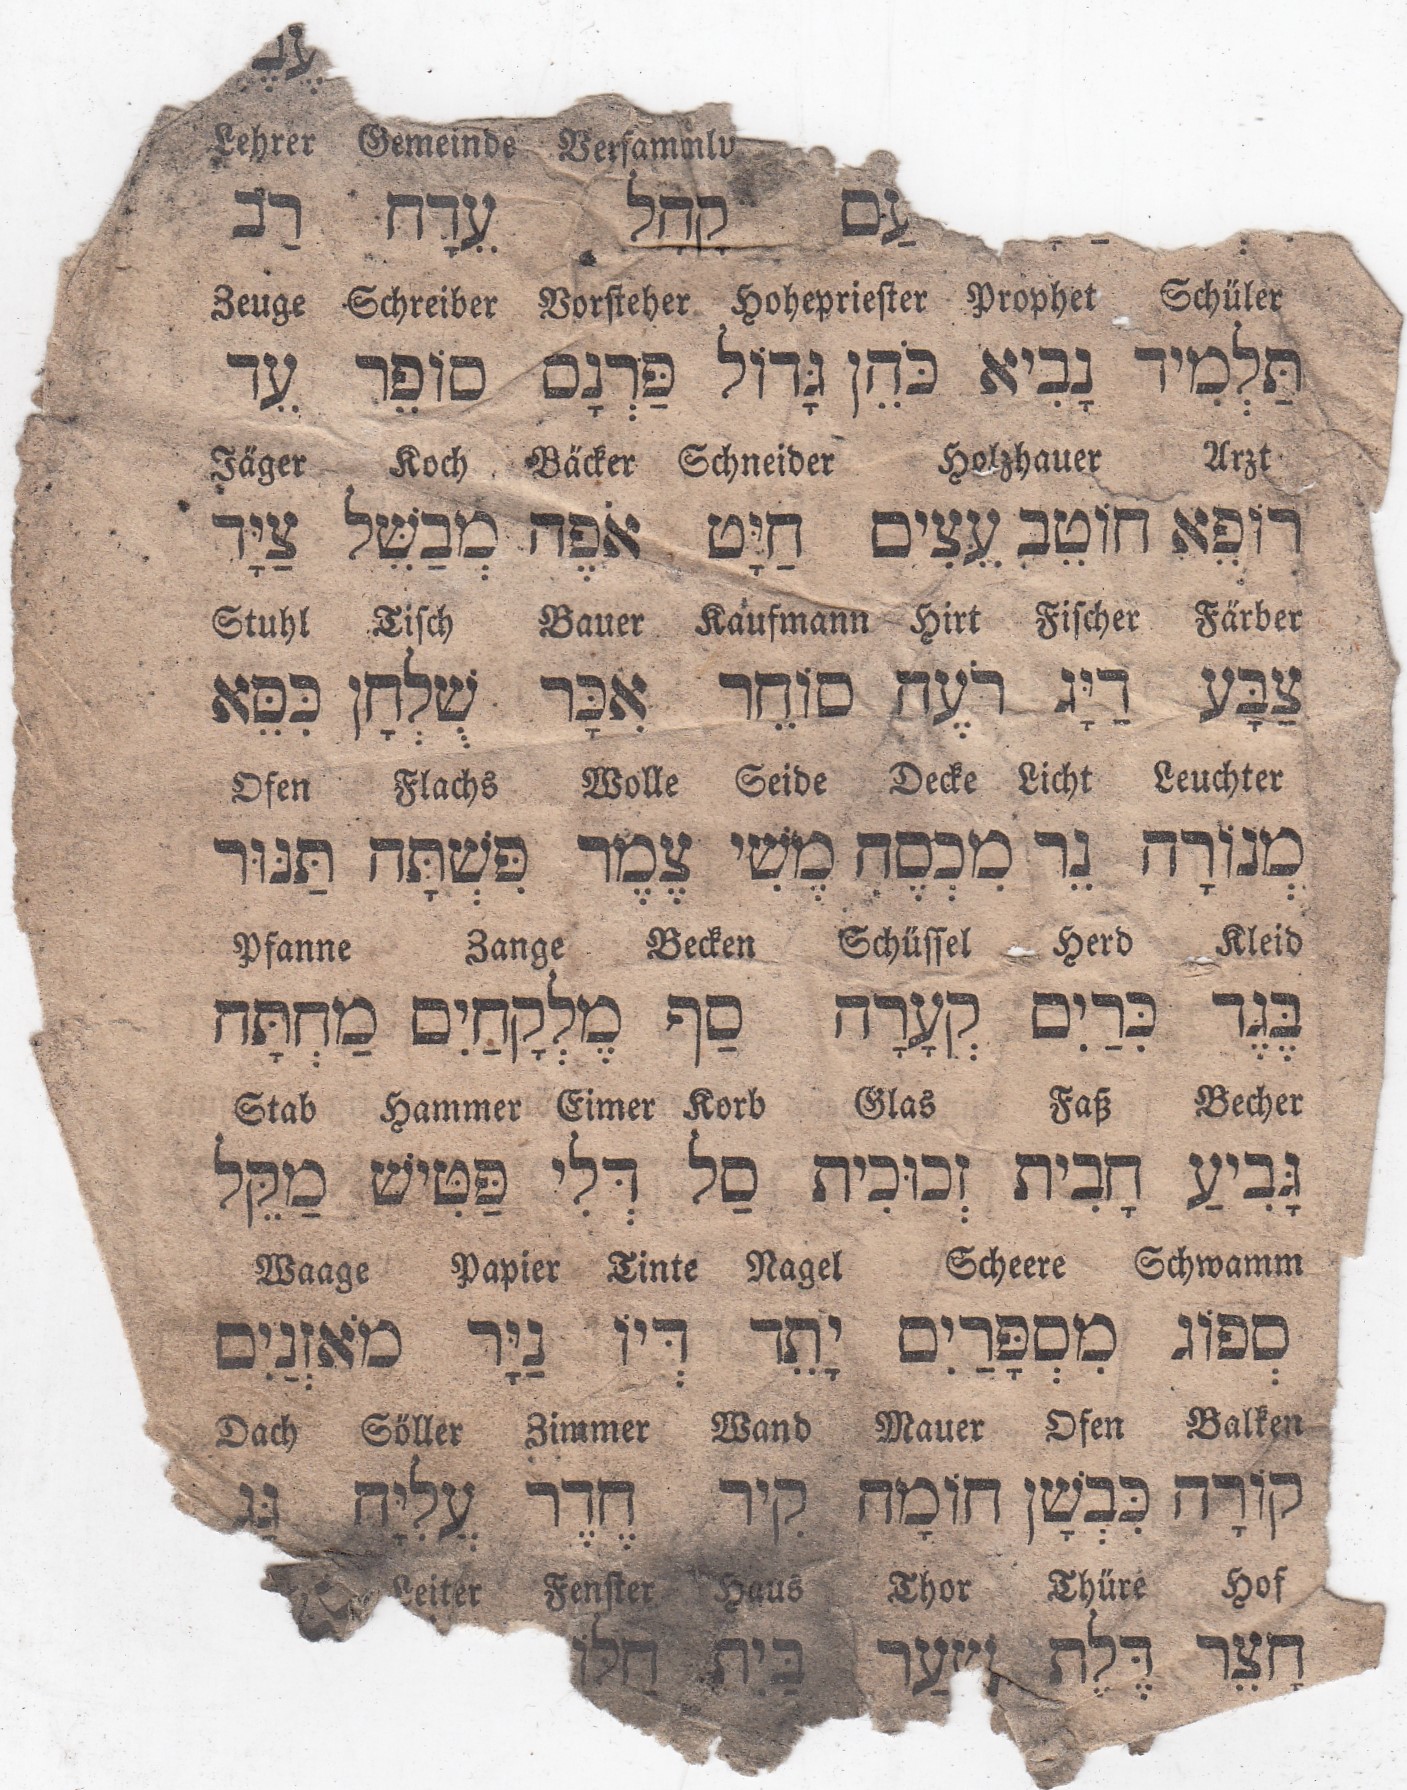 Lehrer Gemeinde
עַם קָהָל עֵדָה רַב
Zeuge Schreiber Vorsteher Hohepriester Prophet Schüler
תַּלְמִיד נָבִיא כֹּהֵן גָּדוֹל פַּרְנָם סוֹפֵר עֵד
Jäger Koch Bäcker Schneider Holzhauer Arzt
רוֹפֵא חוֹטֵב עֵצִים חַיָּט אֹפֶה מְבַשֵּׁל צַיָּד
Stuhl Tisch Bauer Kaufmann Hirt Fischer Färber
צַבָּע דַיָּג רֹעֶה סוֹחֵר אִכָּר שֻׁלְחָן כִּסֵּא
Ofen Flachs Wolle Seide Decke Licht Leuchter
מְנוֹרָה נֵר מִכְסֶה מֶשִׁי צֶמֶר פִּשְׁתָּה תַּנּוּר
Pfanne Zange Becken Schüssel Herd Kleid
בֶּגֶד כִּרַיִם קְעָרָה סַף מֶלְקָחַיִם מַחְתָּה
Stab Hammer Eimer Korb Glas Faß Becher
גָּבִיעַ חָבִית זְכוּכִית סַל דְּלִי פַּטִּישׁ מַקֵּל
Waage Papier Tinte Nagel Scheere Schwamm
סְפוֹג מִסְפָּרַיִם יָתֵד דְּיוֹ נַיָּר מֹאזְנַיִם
Dach Söller Zimmer Wand Mauer Ofen Balken
קוֹרָה כִּבְשָׁן חוֹמָה קִיר חֶדֶר עֲלִיָּה גָּג
Leiter Fenster Haus Thor Thüre Hof
חָצֵר דֶּלֶת שַׁעַר בַּיִת